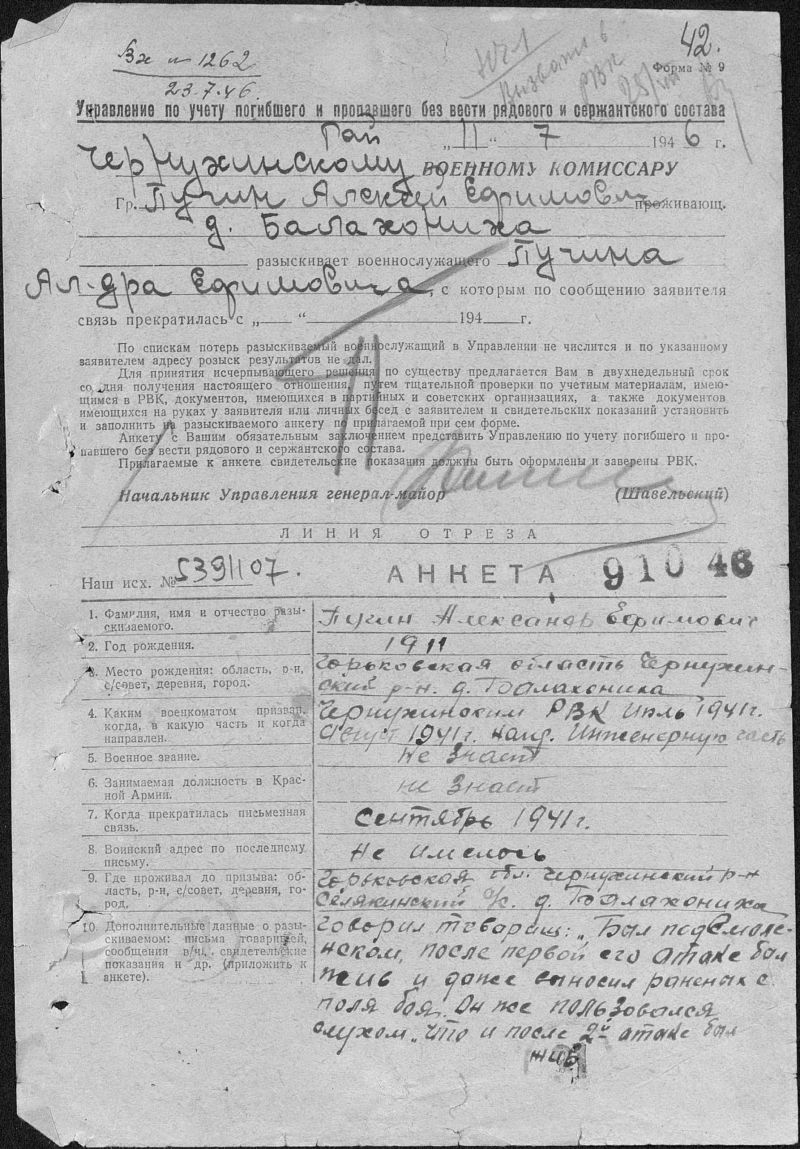 Вх № 1262
23.7.46.
ЮЧ1
Вызвать в
РВК
42.
Форма № 9
Управление по учету погибшего и пропавшего без вести рядового и сержантского состава
Гай „11“ 7 1946 г.
Чернухинскому ВОЕННОМУ КОМИССАРУ
Гр. Пугин Алексей Ефимович проживающ.
д. Балахониха
разыскивает военнослужащего Пугина
Ал-дра Ефимовича, с которым по сообщению заявителя
связь прекратилась с „ “ 194 г.
По спискам потерь разыскиваемый военнослужащий в Управлении не числится и по указанному
заявителем адресу розыск результатов не дал.
Для принятия исчерпывающего решения по существу предлагается Вам в двухнедельный срок
со дня получения настоящего отношения, путем тщательной проверки по учетным материалам, имею-
щимся в РВК, документов, имеющихся в партийных и советских организациях, а также документов
имеющихся на руках у заявителя или личных бесед с заявителем и свидетельских показаний установить
и заполнить на разыскиваемого анкету по прилагаемой при сем форме.
Анкету с Вашим обязательным заключением представить Управлению по учету погибшего и про-
павшего без вести рядового и сержантского состава.
Прилагаемые к анкете свидетельские показания должны быть оформлены и заверены РВК.
Начальник Управления генерал-майор (Шавельский)
ЛИНИЯ ОТРЕЗА
Наш исх. № 5391107. АНКЕТА 91046
1. Фамилия, имя и отчество разы-
скиваемого.
Пугин Александр Ефимович
2. Год рождения.
1911
3. Место рождения: область, р-н,
с/совет, деревня, город.
Горьковская область Чернухин-
ский р-н. д. Балахониха
4. Каким военкоматом призван,
когда, в какую часть и когда
направлен.
Чернухинским РВК Июль 1941г.
Август 1941г. напд. Инженерную часть
5. Военное звание.
не знает
6. Занимаемая должность в Крас-
ной Армии.
не знает
7. Когда прекратилась письменная
связь.
Сентябрь 1941г.
8. Воинский адрес по последнему
письму.
Не имелось
9. Где проживал до призыва: об-
ласть, р-н, с/совет, деревня, го-
род.
Горьковская обл. Чернухинский р-н
Селякинский с/с. д. Балахониха
10. Дополнительные данные о разы-
скиваемом: письма товарищей,
сообщения в/ч, свидетельские
показания и др. (приложить к
анкете).
Говорил товарищ: „Был под Смоле-
нском, после первой его атаке был
жив и даже выносил раненых с
поля боя. Он же пользовался
слухом „что и после 2й атаке был
жив